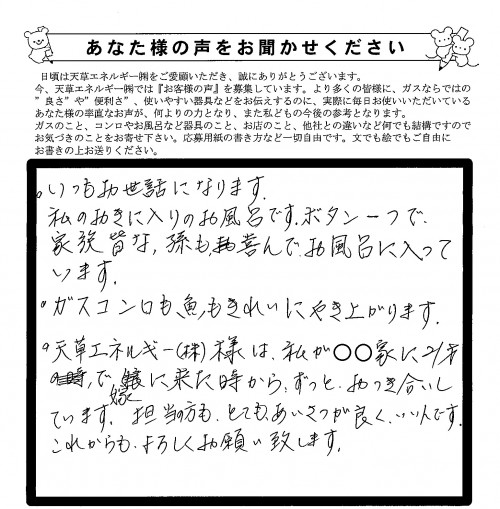 あなた様の声をお聞かせください
日頃は天草エネルギー㈱をご愛顧いただき、誠にありがとうございます。
今、天草エネルギー㈱では『お客様の声』を募集しています。より多くの皆様に、ガスならではの
”良さ”や”便利さ”、使いやすい器具などをお伝えするのに、実際に毎日お使いいただいている
あなた様の率直なお声が、何よりの力となり、また私どもの今後の参考となります。
ガスのこと、コンロやお風呂など器具のこと、お店のこと、他社との違いなど何でも結構ですので
お気づきのことをお寄せ下さい。応募用紙の書き方など一切自由です。文でも絵でもご自由に
お書きの上お送りください。
。いつもお世話になります。
私のお気に入りのお風呂です。ボタン一つで、
家族皆な,孫も喜んでお風呂に入って
います。
。ガスコンロも、魚もきれいにやき上がります.
。天草エネルギー(株)様は、私が〇〇家に21才
で嫁に来た時から、ずっと、おつき合いし
ています。担当の方も、とても、あいさつが良く、いい人です。
これからも、よろしくお願い致します。